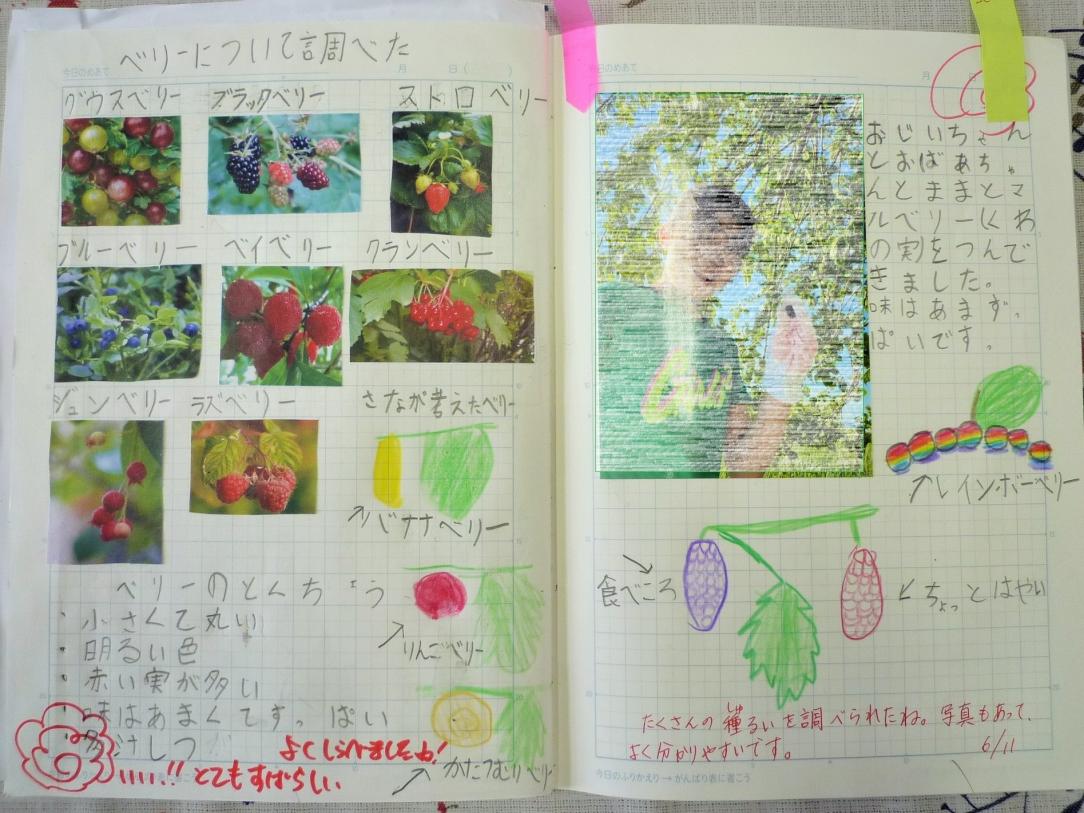 ベリーについて調べた
今日のめあて 月 日( )
グウスベリー ブラックベリー ストロベリー
ブルーベリー ベイベリー クランベリー
ジュンベリー ラズベリー さなが考えたベリー
バナナベリー
ベリーのとくちょう
・小さくて丸い
・明るい色
りんごベリー
・赤い実が多い
・味はあまくてすっぱい
・多汁しつ
よくしらべましたね!
いいい!! とてもすばらしい
かたつむりベリー
今日のめあて 月 日
おじいちゃん
とおばあち
んとままとマ
ルベリーくわ
の実をつんで
きました。
味はあまず。
ぱいです。
レインボーベリー
食べころ
ちょっとはやい
たくさんの種るいを調べられたね。写真もあって、
よく分かりやすいです。 6/11
今日のふりかえり→がんばり表に書こう